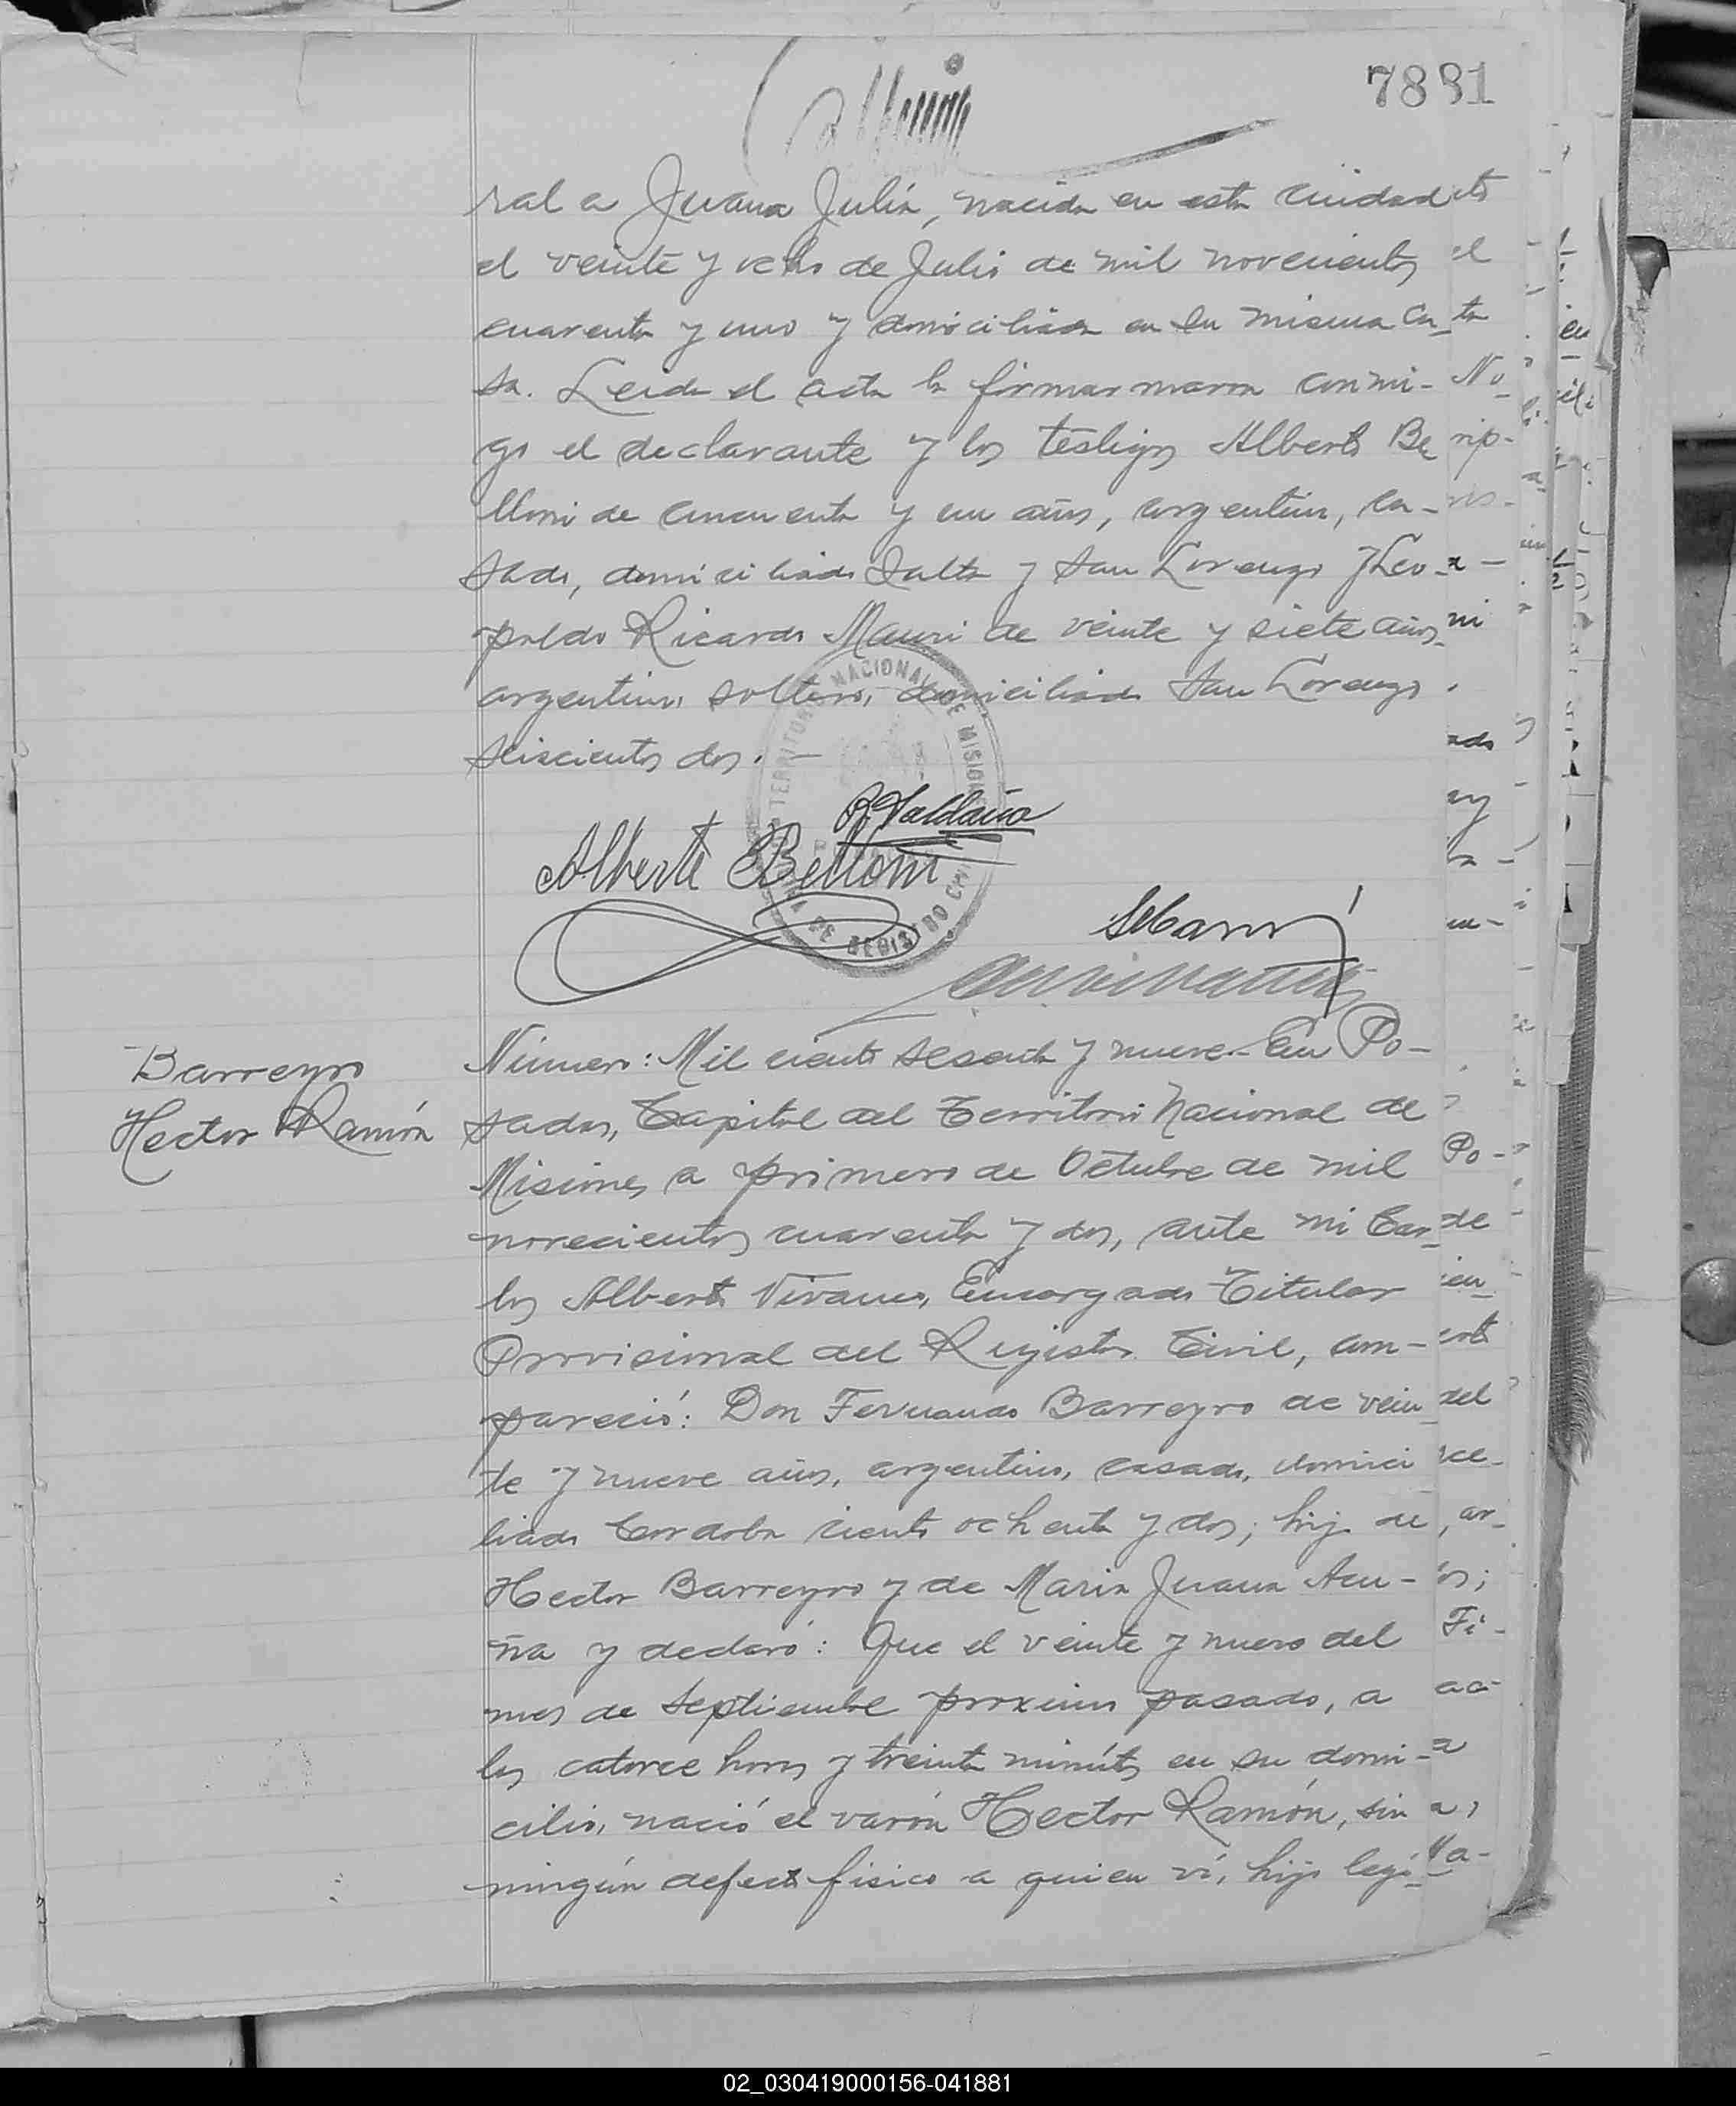 7881
ral a Juana Julia, nacida en esta ciudad
el veinte y ocho de Julio de mil novecientos
cuarenta y uno y domiciliada en su misma ca-
sa. Leida el acta la firmarmaron conmi-
go el declarante y los testigos Alberto Be
lloni de cincuenta y un años, argentino, ca-
sado, domiciliado Salta y San Lorenzo y Leo-
poldo Ricardo Mauri de veinte y siete años
argentino, soltero, domiciliado San Lorenzo
seiscientos dos. —
TERRITORIO NACIONAL DE MISIONES
DE REGISTRO CIVIL
Alberto Belloni
Barreyro
Hector Ramón
Número: Mil ciento sesenta y nueve. En Po-
sadas, Capital del Territorio Nacional de
Misiones a primero de Octubre de mil
novecientos cuarenta y dos, ante mi Car-
los Alberto Vivanco, Encargado Titular
Provisional del Registro Civil, com-
pareció: Don Fernando Barreyro de vein
te y nueve años, argentino, casado, domici
liado Cordoba ciento ochenta y dos; hijo de
Hector Barreyro y de Maria Juana Acu-
ña y declaró: Que el veinte y nueve del
mes de Septiembre proximo pasado, a
las catorce horas y treinta minútos en su domi-
cilio, nació el varón Hector Ramón, sin
ningún defecto fisico a quien ví, hijo legí-
02_030419000156-041881